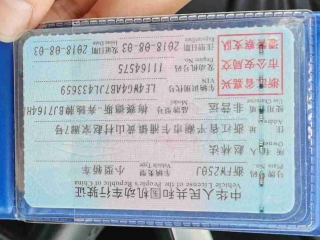 中华人民共和国机动车行驶证
Vehicle License of the People's Republic of China
号牌号码
Plate No.
浙FW250J
车辆类型
Vehicle Type
小型轿车
所有人
Owner
住址
Address
浙江省平湖市
使用性质
Use Character
非营运
品牌型号
Model
梅赛德斯-奔驰牌BJ7164H
浙江省嘉兴
市公安局交
通警察支队
车辆识别代号
VIN
LE4WG4AB7JL433659
发动机号码
Engine No.
11164575
注册日期
Register Date
2018-08-03
发证日期
Issue Date
2018-08-03